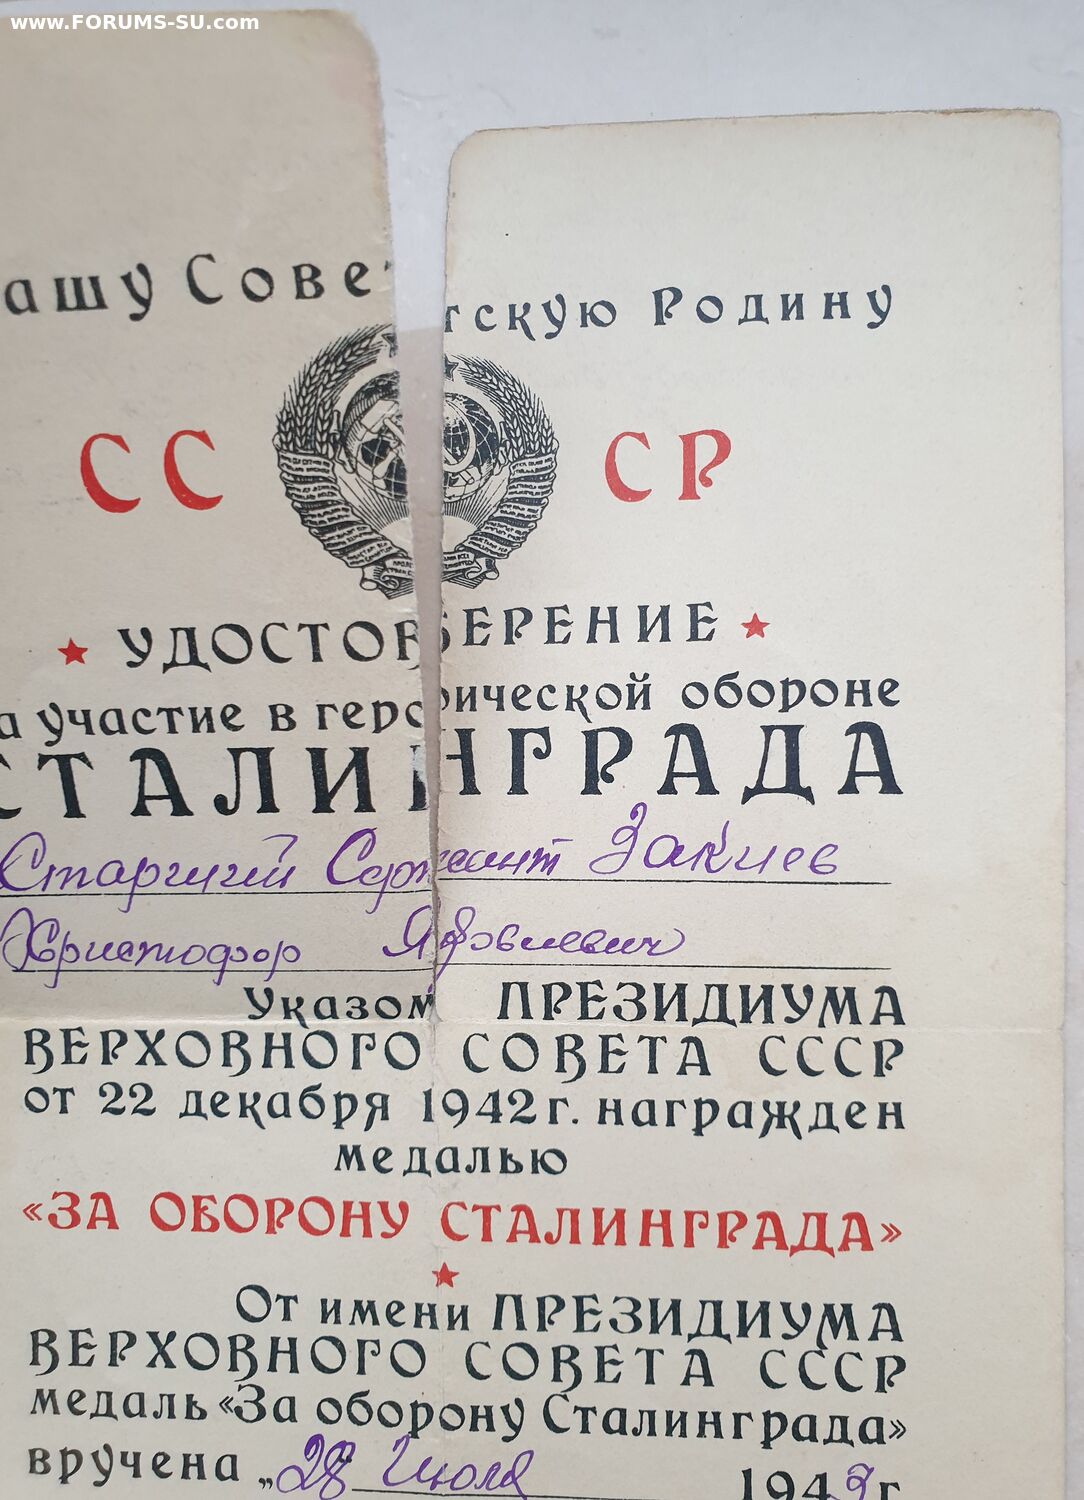 www.FORUMS-SU.com
ашу Советскую Родину
СССР
УДОСТОВЕРЕНИЕ
а участие в героической обороне
СТАЛИНГРАДА
Старший Сержант Закиев
Христофор
Указом ПРЕЗИДИУМА
ВЕРХОВНОГО СОВЕТА СССР
от 22 декабря 1942 г. награжден
медалью
«ЗА ОБОРОНУ СТАЛИНГРАДА»
От имени ПРЕЗИДИУМА
ВЕРХОВНОГО СОВЕТА СССР
медаль «За оборону Сталинграда»
вручена „28 Июля 194 г